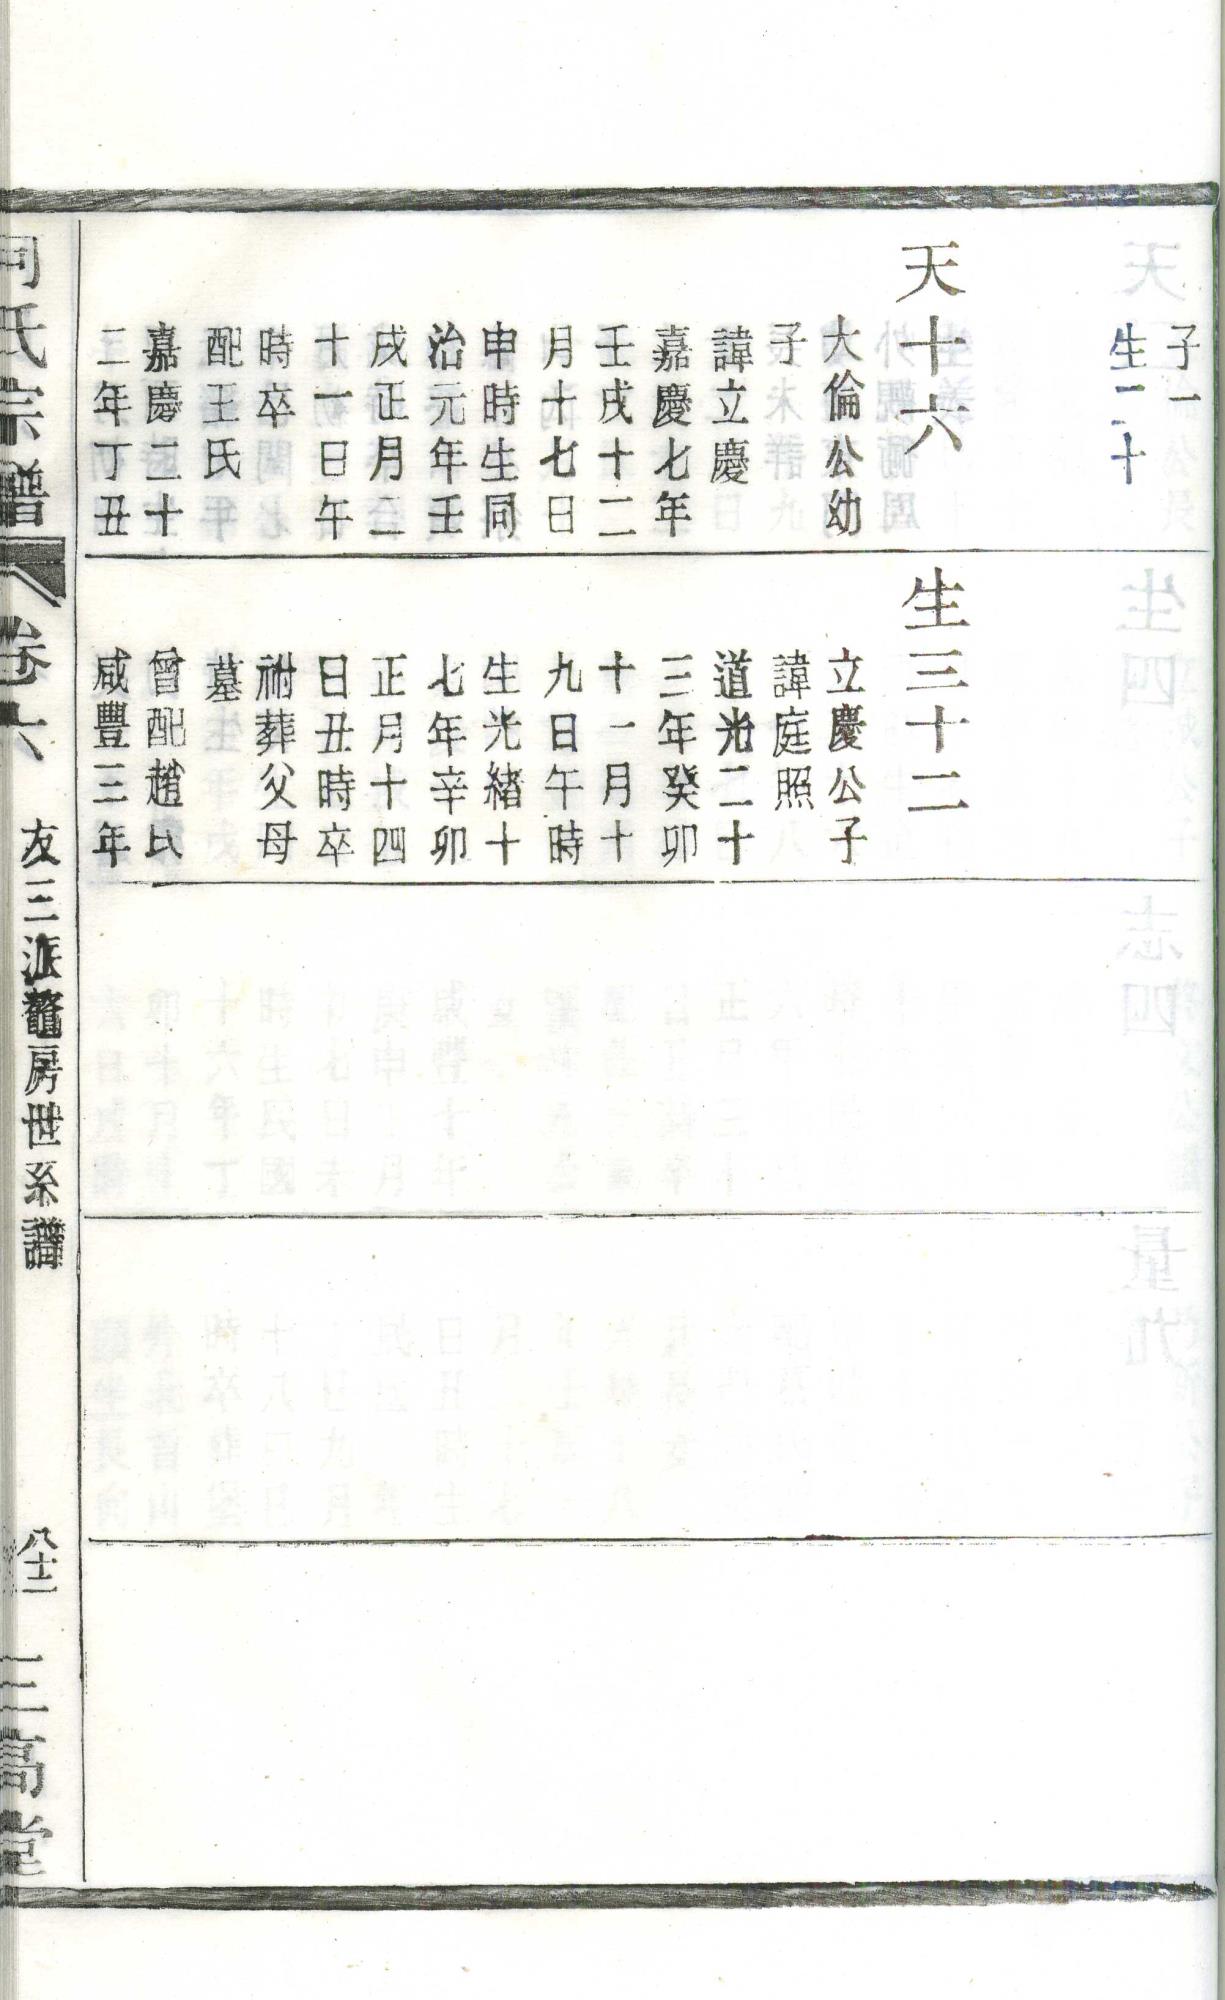 子一
生二十
天十六
大倫公幼
子
諱立慶
嘉慶七年
壬戌十二
月十七日
申時生同
治元年壬
戌正月二
十一日午
時卒
配王氏
嘉慶二十
二年丁丑
生三十二
立慶公子
諱庭照
道光二十
三年癸卯
十一月十
九日午時
生光緒十
七年辛卯
正月十四
日丑時卒
祔葬父母
墓
曾配趙氏
咸豐三年
氏宗譜
卷六
友三派鼇房世系譜
八十二
三高堂